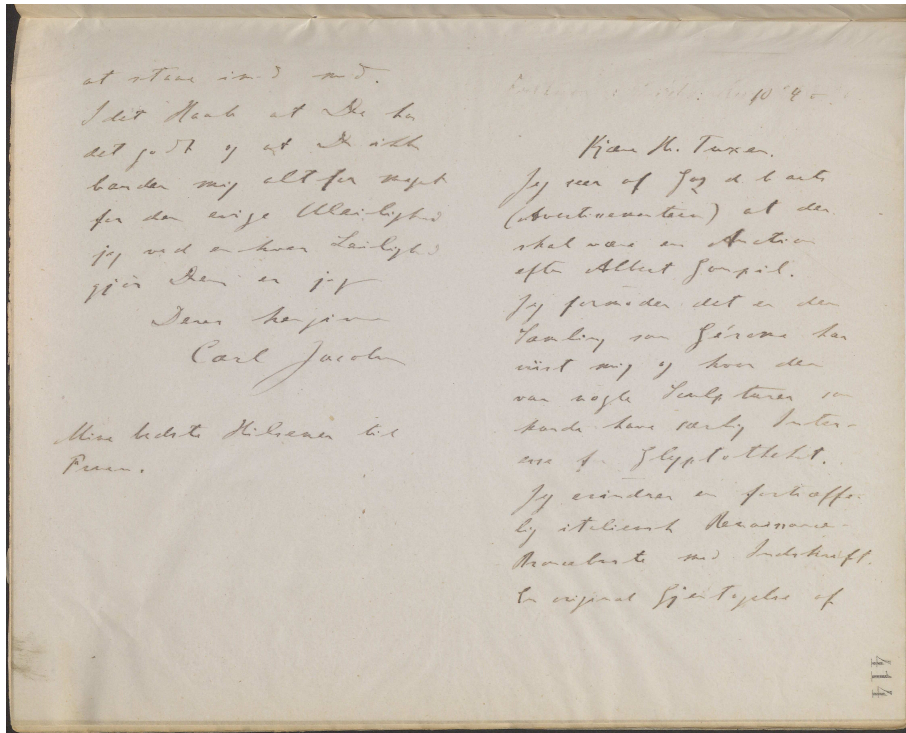 at staae ind med.
I det Haab at De har
det godt og at De ikke
bander mig altfor meget
for den evige Uleilighed
jeg ved enhver Leilighed
gjør Dem er jeg
Deres hengivne
Carl Jacobsen
Mine bedste Hilsener til
Fruen.
10 4
Kjære Hr. Tuxen.
Jeg seer af Gaz d b arts
(Avertissementeen) at der
skal være en Auction
efter Albert Goupil.
Jeg formoder det er den
Samling som Gérome har
viist mig og hvor der
var nogle Sculpturer som
kunde have særlig Inter-
esse for Glyptotheket.
Jeg erindrer en fortræffe-
lig italiensk Renaissance-
Broncebuste med Indskrift.
En original Gjentagelse af
414